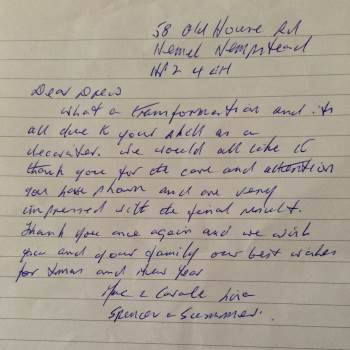 58 Old House Rd
Hemel Hempstead
HP2 4
Dear Drew
What a transformation and its
all due to your skill as a
decorator. We would all like to
thank you for the care and attention
you have shown and are very
impressed with the final result.
Thank you once again and we wish
you and your family our best wishes
for Xmas and New Year
& Carole
Spencer & Summer.